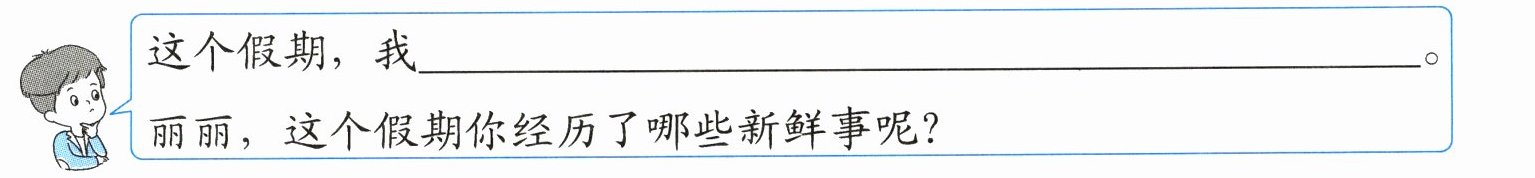 这个假期，我____________________。
丽丽，这个假期你经历了哪些新鲜事呢？